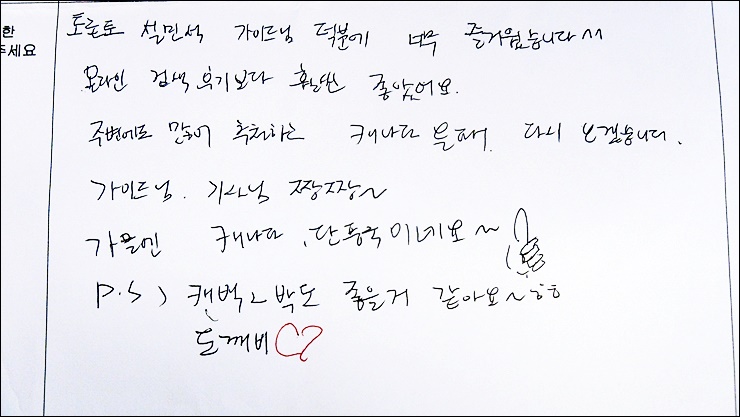 한
주세요
토론토 설민석 가이드님 덕분에 너무 즐거웠습니다^^
온라인 검색 후기보다 훨씬 좋았어요.
주변에도 많이 추천하는 캐나다 다시 오겠습니다.
가이드님. 기사님 짱짱~
가을엔 캐나다, 단풍국이네요~
P.S) 퀘벡 2박도 좋을거 같아요~ㅎㅎ
도깨비